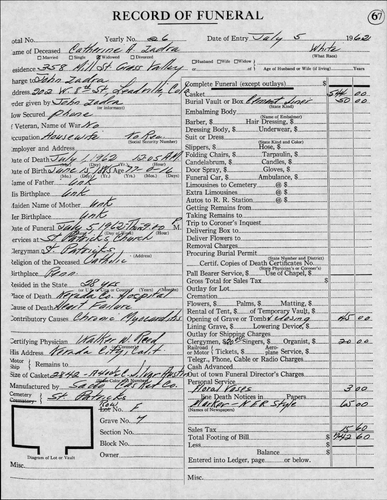 RECORD OF FUNERAL
67
Total No. Yearly No. 26 Date of Entry July 5 1962
Name of Deceased Catherine A. Zadra White
Married Single Widowed Divorced Husband Wife Widow (What Race)
Residence 358 Mill St. Grass Valley Age of Husband or Wife (if living) Years
Charge to John Zadra Complete Funeral (except outlays) $
Address 202 W. 8th St. Leadville, Colo Casket
Order given by John Zadra Burial Vault or Box Cement Liner 50 00
How Secured phone Embalming Body
(Name of Embalmer)
If Veteran, Name of War No Barber, $ Hair Dressing, $
Occupation Housewife Dressing Body, $ Underwear, $
(Social Security Number) Suit or Dress
(State Kind and Color)
Employer and Address Slippers, $ Hose, $
Date of Death July 1, 1962 12:05 A.M. Folding Chairs, $ Tarpaulin, $
Candelabrum, $ Candles, $
Date of Birth June 15, Door Spray, $ Gloves, $
Name of Father Unk Funeral Car, $ Ambulance, $
His Birthplace Unk Limousines to Cemetery @ $
Extra Limousines @ $
Maiden Name of Mother Unk Autos to R. R. Station @ $
Her Birthplace Unk Getting Remains from
Taking Remains to
Date of Funeral July 5, 1962 Trip to Coroner's Inquest
Services at St. Patricks Church Delivering Box to
Clergyman St. Patricks Deliver Flowers to
(Address) Removal Charges
Religion of the Deceased Catholic Procuring Burial Permit
(State Number and District)
Birthplace Certif. Copies of Death Certificates
(State Physician's or Coroner's)
Resided in the State 28 yrs Pall Bearer Service, $ Use of Chapel, $
Gross Total for Sales Tax $
Place of Death Nevada Co. Hospital Outlay for Lot
Cause of Death Heart Failure Cremation
Flowers, $ Palms, $ Matting, $
Contributory Causes Chronic Myocarditis Rental of Tent, $ of Temporary Vault, $
Opening of Grave or Tomb & closing 45 00
Lining Grave, $ Lowering Device, $
Outlay for Shipping Charges
Certifying Physician Walter W. Reed Clergymen, $ Singers, $ Organist, $ 20 00
His Address Nevada City, Calif. Railroad or Motor $ Tickets, $ Aeroplane Service, $
Telgr., Phone, Cable or Radio Charges
Remains Shipped to Cash Advanced
Size of Casket Out of town Funeral Director's Charges
Personal Service
Manufactured by Casket Co. Floral Roses 3 00
Cemetery Crematory St. Patricks Death Notices in Papers
(Names of Newspapers)
Lot No. F Marker - Style 65 00
Grave No. 7
Section No. Sales Tax 15 60
Block No. Total Footing of Bill $ 742 60
Owner Less
Balance $
Diagram of Lot or Vault Entered into Ledger, page or below.
Misc. Misc.